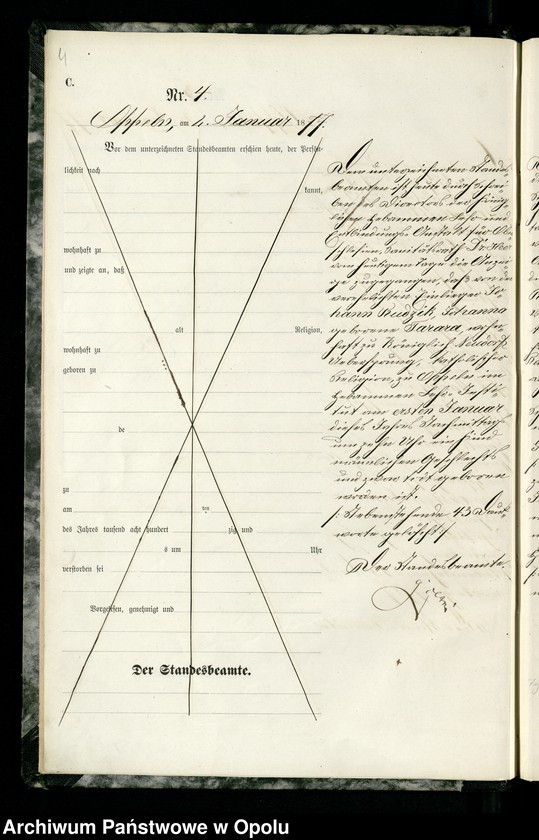 4
C.
Nr. 4.
Oppeln, am 4. Januar 1877.
Vor dem unterzeichneten Standesbeamten erschien heute, der Persön-
lichkeit nach
kannt,
wohnhaft zu
und zeigte an, daß
alt Religion,
wohnhaft zu
geboren zu
de
zu
am ten
des Jahres tausend acht hundert zig und
s um Uhr
verstorben sei
Vorgelesen, genehmigt und
Der Standesbeamte.
Dem unterzeichneten Standes-
beamten ist heute durch Schrei-
ben des Directors der König-
lichen Hebammen Lehr und
Entbindungs Anstalt für Ober
schlesien, Sanitätsrath Dr.
vom heutigen Tage die Anzei-
ge zugegangen, daß von der
verehelichten Einlieger Jo-
hann Kudzik, Johanna
geborene Tarara, wohn-
haft zu Königlich Neudorf
katholischer
Religion, zu Oppeln im
Hebammen Lehr-Insti-
tut am ersten Januar
dieses Jahres Nachmittags
um zehn Uhr ein Kind
männlichen Geschlechts
und zwar todt geboren
worden ist.
/: Nebenstehende 43 Druck-
worte gelöscht :/
Der Standesbeamte.
Archiwum Państwowe w Opolu